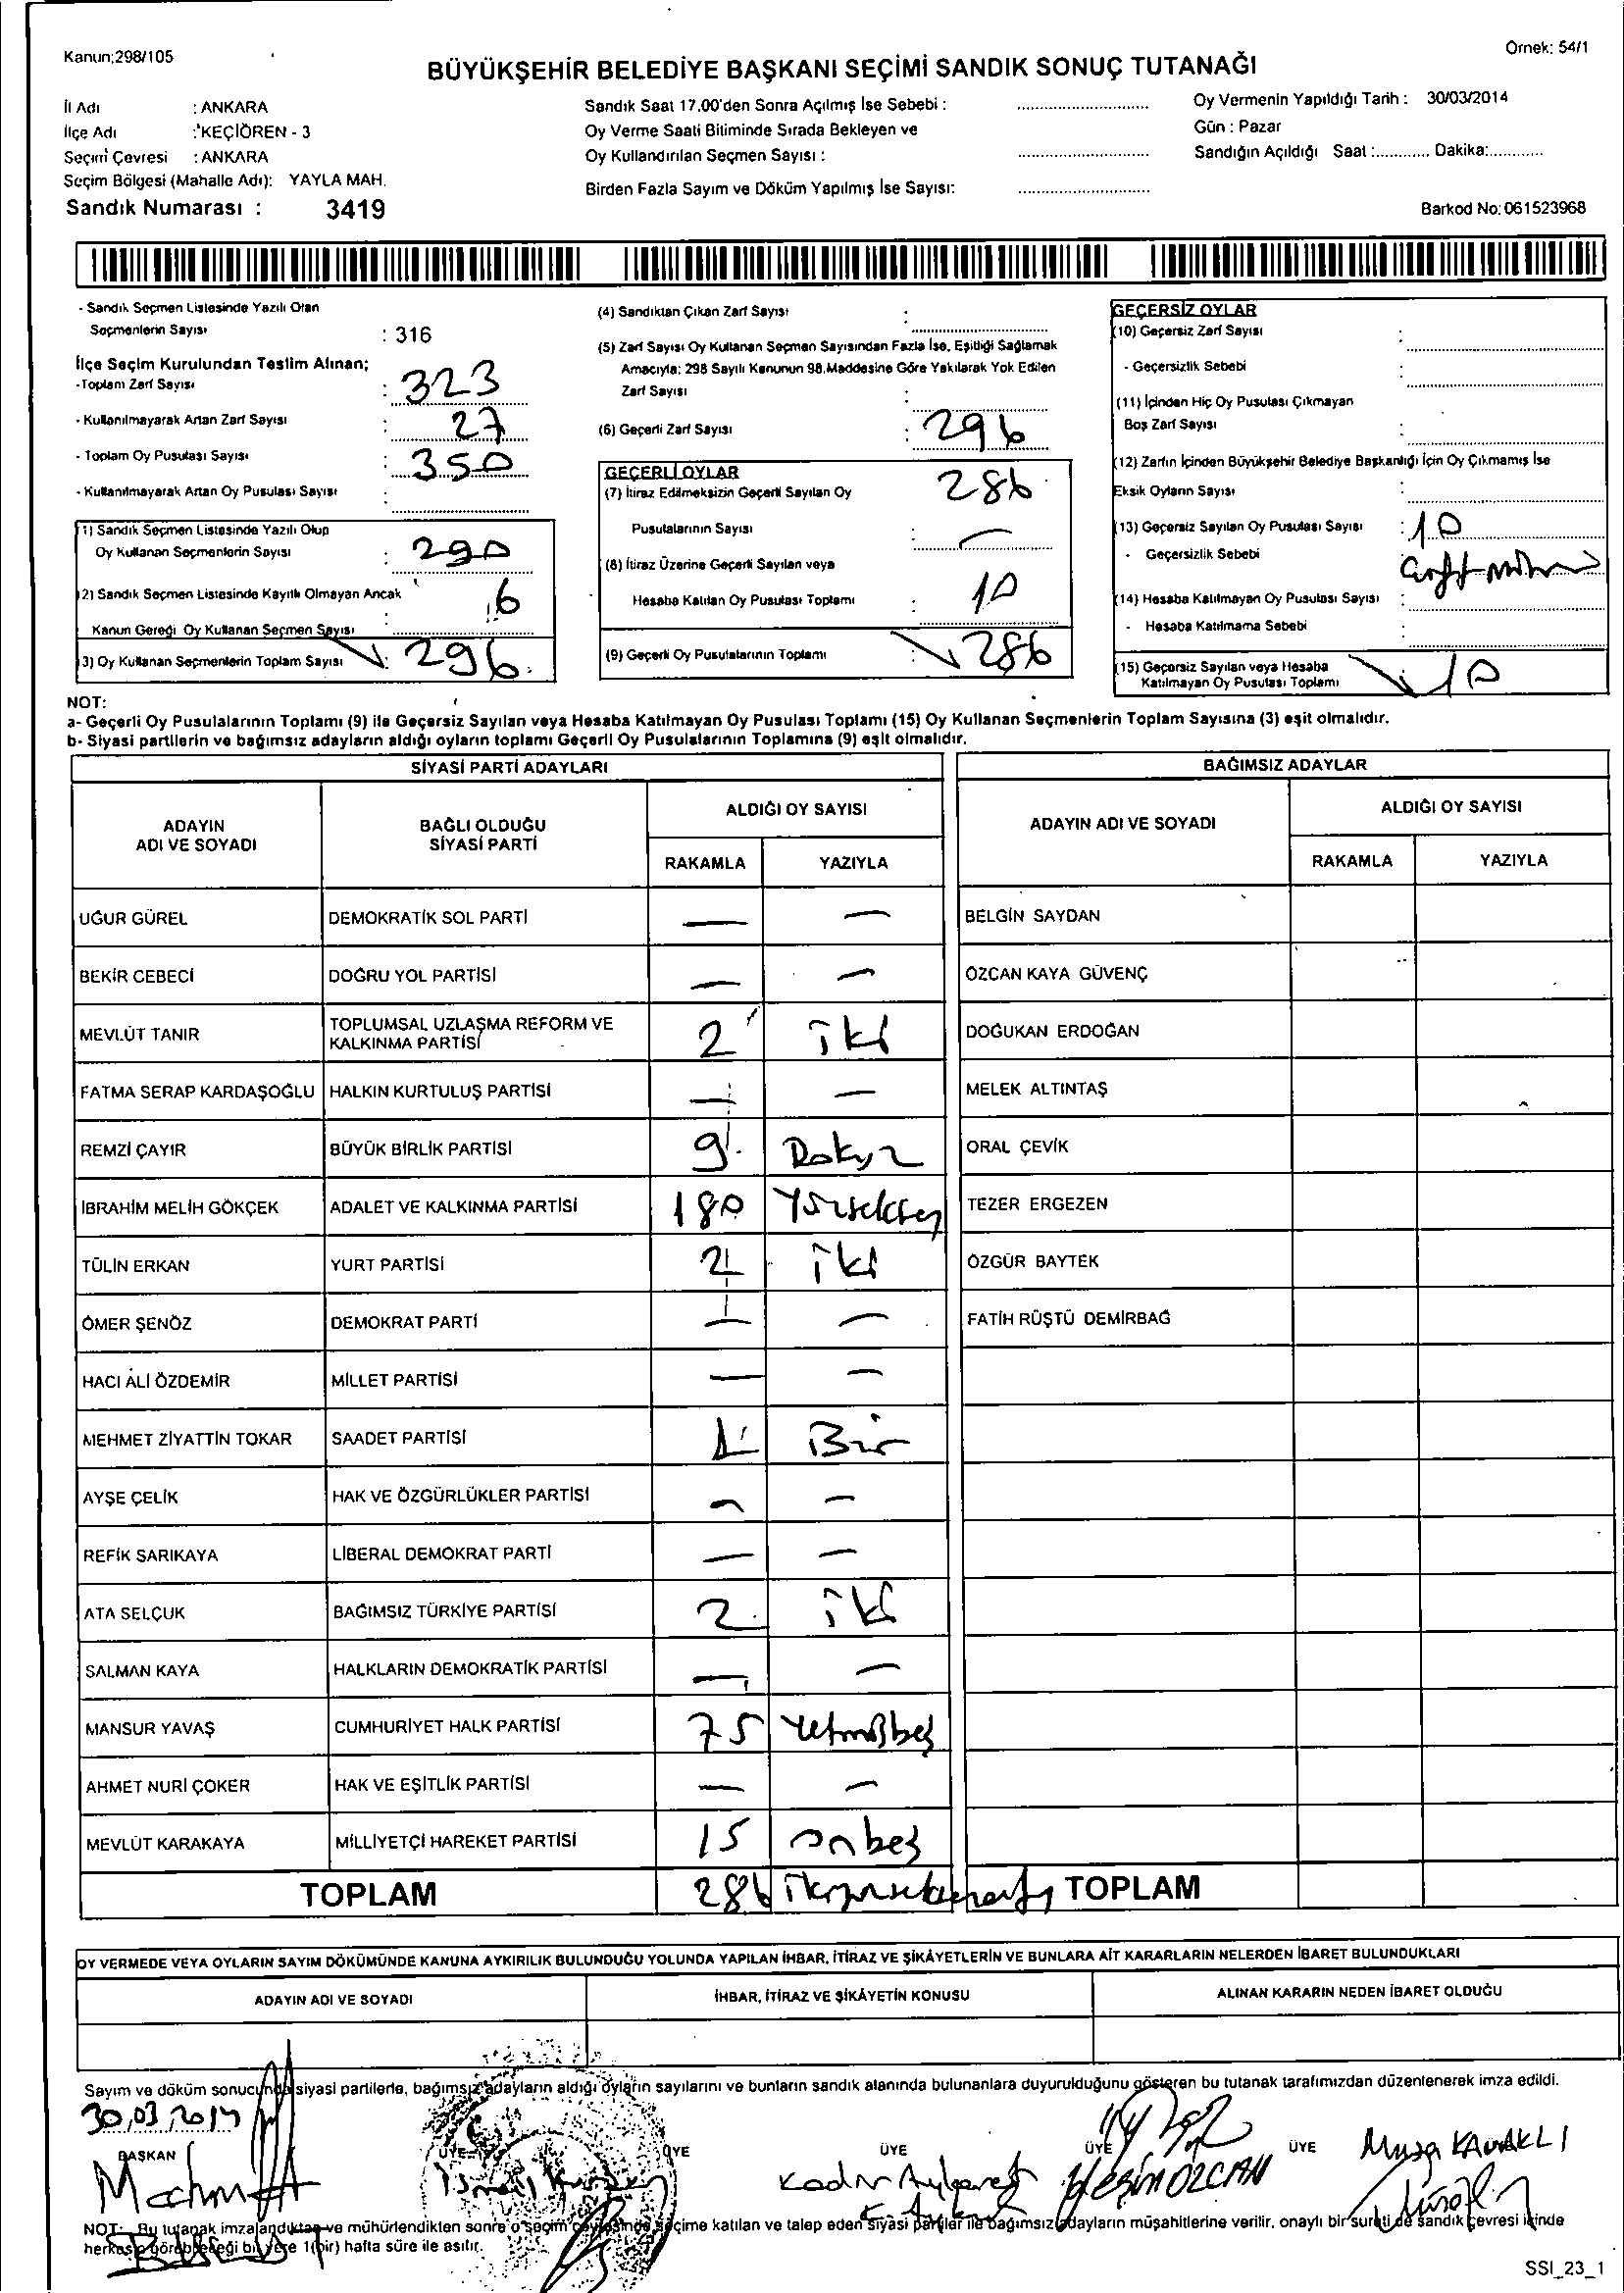 Kanun:298/105
Örnek: 54/1
BÜYÜKŞEHİR BELEDİYE BAŞKANI SEÇİMİ SANDIK SONUÇ TUTANAĞI
İl Adı : ANKARA
İlçe Adı : KEÇİÖREN - 3
Seçim Çevresi : ANKARA
Seçim Bölgesi (Mahalle Adı): YAYLA MAH.
Sandık Numarası : 3419
Sandık Saat 17.00'den Sonra Açılmış İse Sebebi :
Oy Verme Saati Bitiminde Sırada Bekleyen ve
Oy Kullandırılan Seçmen Sayısı :
Birden Fazla Sayım ve Döküm Yapılmış İse Sayısı:
Oy Vermenin Yapıldığı Tarih : 30/03/2014
Gün : Pazar
Sandığın Açıldığı Saat :............ Dakika:............
Barkod No: 061523968
- Sandık Seçmen Listesinde Yazılı Olan
Seçmenlerin Sayısı : 316
İlçe Seçim Kurulundan Teslim Alınan;
-Toplam Zarf Sayısı : 323
- Kullanılmayarak Artan Zarf Sayısı : 27
- Toplam Oy Pusulası Sayısı : 350
- Kullanılmayarak Artan Oy Pusulası Sayısı :
(1) Sandık Seçmen Listesinde Yazılı Olup
Oy Kullanan Seçmenlerin Sayısı : 290
(2) Sandık Seçmen Listesinde Kayıtlı Olmayan Ancak
Kanun Gereği Oy Kullanan Seçmen Sayısı 6
(3) Oy Kullanan Seçmenlerin Toplam Sayısı : 296
(4) Sandıktan Çıkan Zarf Sayısı :
(5) Zarf Sayısı Oy Kullanan Seçmen Sayısından Fazla İse, Eşitliği Sağlamak
Amacıyla; 298 Sayılı Kanunun 98.Maddesine Göre Yakılarak Yok Edilen
Zarf Sayısı :
(6) Geçerli Zarf Sayısı : 296
GEÇERLİ OYLAR
(7) İtiraz Edilmeksizin Geçerli Sayılan Oy 286
Pusulalarının Sayısı : —
(8) İtiraz Üzerine Geçerli Sayılan veya
Hesaba Katılan Oy Pusulası Toplamı : 10
(9) Geçerli Oy Pusulalarının Toplamı : 286
GEÇERSİZ OYLAR
(10) Geçersiz Zarf Sayısı :
- Geçersizlik Sebebi :
(11) İçinden Hiç Oy Pusulası Çıkmayan
Boş Zarf Sayısı :
(12) Zarfın İçinden Büyükşehir Belediye Başkanlığı İçin Oy Çıkmamış İse
Eksik Oyların Sayısı :
(13) Geçersiz Sayılan Oy Pusulası Sayısı : 10
- Geçersizlik Sebebi :
(14) Hesaba Katılmayan Oy Pusulası Sayısı :
- Hesaba Katılmama Sebebi :
(15) Geçersiz Sayılan veya Hesaba
Katılmayan Oy Pusulası Toplamı 10
NOT:
a- Geçerli Oy Pusulalarının Toplamı (9) ile Geçersiz Sayılan veya Hesaba Katılmayan Oy Pusulası Toplamı (15) Oy Kullanan Seçmenlerin Toplam Sayısına (3) eşit olmalıdır.
b- Siyasi partilerin ve bağımsız adayların aldığı oyların toplamı Geçerli Oy Pusulalarının Toplamına (9) eşit olmalıdır.
SİYASİ PARTİ ADAYLARI
ADAYIN ADI VE SOYADI
BAĞLI OLDUĞU SİYASİ PARTİ
ALDIĞI OY SAYISI
RAKAMLA YAZIYLA
UĞUR GÜREL DEMOKRATİK SOL PARTİ — —
BEKİR CEBECİ DOĞRU YOL PARTİSİ — —
MEVLÜT TANIR TOPLUMSAL UZLAŞMA REFORM VE KALKINMA PARTİSİ 2 iki
FATMA SERAP KARDAŞOĞLU HALKIN KURTULUŞ PARTİSİ — —
REMZİ ÇAYIR BÜYÜK BİRLİK PARTİSİ 9 Dokuz
İBRAHİM MELİH GÖKÇEK ADALET VE KALKINMA PARTİSİ 180 Yüzseksen
TÜLİN ERKAN YURT PARTİSİ 2 iki
ÖMER ŞENÖZ DEMOKRAT PARTİ — —
HACI ALİ ÖZDEMİR MİLLET PARTİSİ — —
MEHMET ZİYATTİN TOKAR SAADET PARTİSİ 1 Bir
AYŞE ÇELİK HAK VE ÖZGÜRLÜKLER PARTİSİ — —
REFİK SARIKAYA LİBERAL DEMOKRAT PARTİ — —
ATA SELÇUK BAĞIMSIZ TÜRKİYE PARTİSİ 2 iki
SALMAN KAYA HALKLARIN DEMOKRATİK PARTİSİ — —
MANSUR YAVAŞ CUMHURİYET HALK PARTİSİ 75 Yetmişbeş
AHMET NURİ ÇOKER HAK VE EŞİTLİK PARTİSİ — —
MEVLÜT KARAKAYA MİLLİYETÇİ HAREKET PARTİSİ 15 onbeş
TOPLAM 286 ikiyüzseksenaltı
BAĞIMSIZ ADAYLAR
ADAYIN ADI VE SOYADI
ALDIĞI OY SAYISI
RAKAMLA YAZIYLA
BELGİN SAYDAN
ÖZCAN KAYA GÜVENÇ
DOĞUKAN ERDOĞAN
MELEK ALTINTAŞ
ORAL ÇEVİK
TEZER ERGEZEN
ÖZGÜR BAYTEK
FATİH RÜŞTÜ DEMİRBAĞ
TOPLAM
OY VERMEDE VEYA OYLARIN SAYIM DÖKÜMÜNDE KANUNA AYKIRILIK BULUNDUĞU YOLUNDA YAPILAN İHBAR, İTİRAZ VE ŞİKÂYETLERİN VE BUNLARA AİT KARARLARIN NELERDEN İBARET BULUNDUKLARI
ADAYIN ADI VE SOYADI
İHBAR, İTİRAZ VE ŞİKÂYETİN KONUSU
ALINAN KARARIN NEDEN İBARET OLDUĞU
Sayım ve döküm sonucunda siyasi partilerle, bağımsız adayların aldığı oyların sayılarını ve bunların sandık alanında bulunanlara duyurulduğunu gösteren bu tutanak tarafımızdan düzenlenerek imza edildi.
30,03,2014
BAŞKAN ÜYE ÜYE ÜYE ÜYE ÜYE
İsmail
ÖZCAN
Musa KAVAKLI
NOT: Bu tutanak imzalandıktan ve mühürlendikten sonra o seçim çevresinde seçime katılan ve talep eden siyasi partiler ile bağımsız adayların müşahitlerine verilir, onaylı bir sureti de sandık çevresi içinde
herkesin görebileceği bir yere 1(bir) hafta süre ile asılır.
SSI_23_1